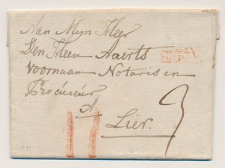 Aan Mijn Heer
Den Heer Aaerts
voornaam Notaris en
Procureur
A
Lier.
3